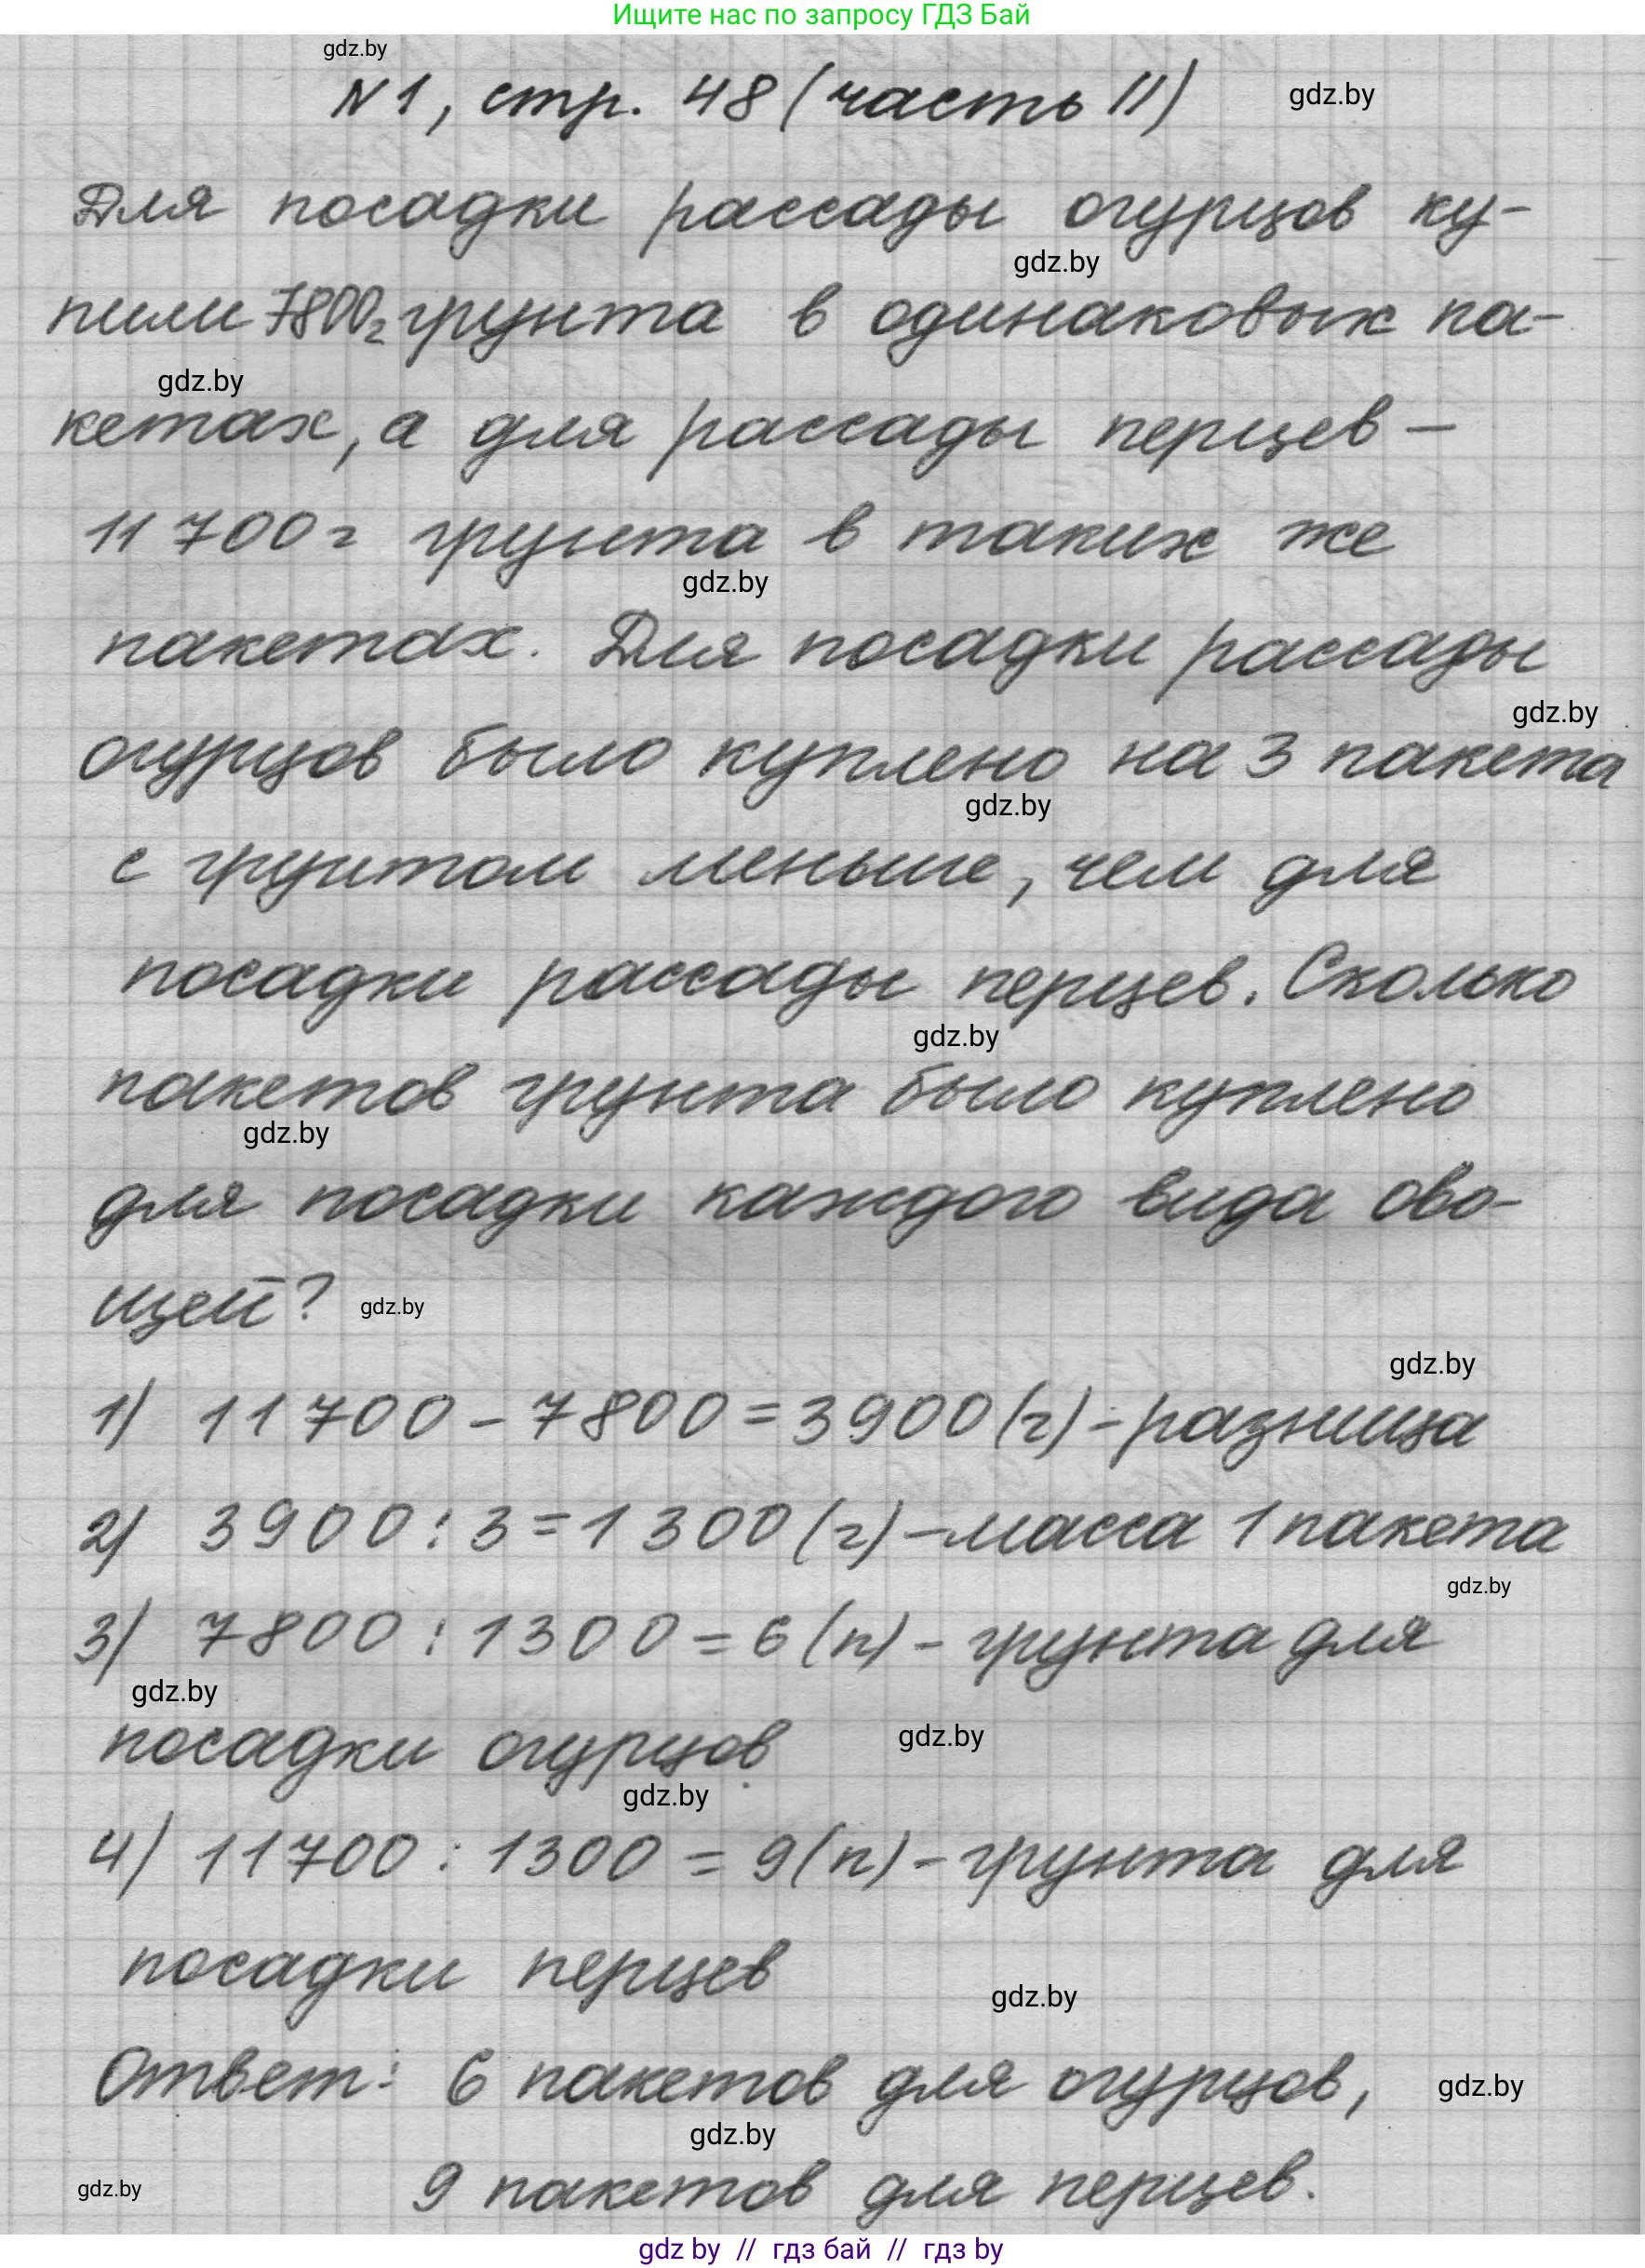 Ищите нас по запросу ГДЗ Бай
gdz.by
N1, стр. 48 (часть II)
gdz.by
Для посадки рассады огурцов ку-
gdz.by
пили 7800г грунта в одинаковых па-
gdz.by
кетах, а для рассады перцев —
11 700 г грунта в таких же
gdz.by
пакетах. Для посадки рассады
gdz.by
огурцов было куплено на 3 пакета
gdz.by
с грунтом меньше, чем для
посадки рассады перцев. Сколько
gdz.by
пакетов грунта было куплено
gdz.by
для посадки каждого вида ово-
щей?
gdz.by
gdz.by
1) 11 700 - 7800 = 3900 (г) - разница
2) 3900 : 3 = 1300 (г) - масса 1 пакета
gdz.by
3) 7800 : 1300 = 6 (п) - грунта для
gdz.by
посадки огурцов
gdz.by
gdz.by
4) 11700 : 1300 = 9 (п) - грунта для
посадки перцев
gdz.by
Ответ: 6 пакетов для огурцов,
gdz.by
gdz.by
9 пакетов для перцев.
gdz.by
gdz by // гдз бай // гдз by